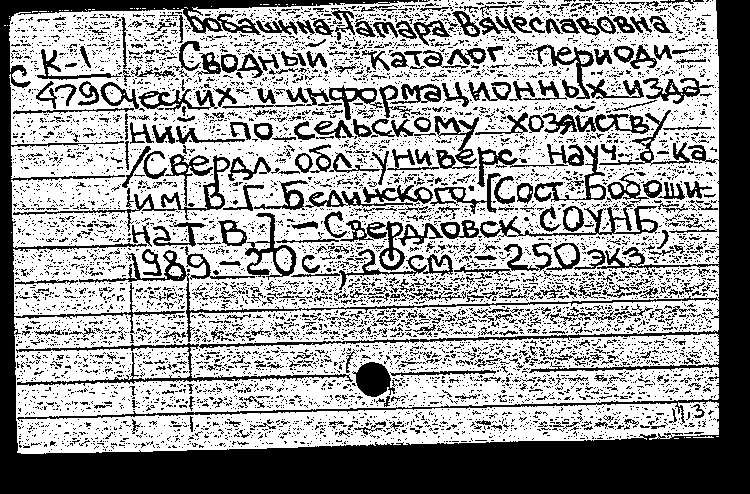 Бобашина, Тамара Вячеславовна
К-1 Сводный каталог периоди-
с 4790 ческих и информационных изда-
ний по сельскому хозяйству
/Свердл. обл. универс. науч. б-ка
им. В. Г. Белинского; [Сост. Бобоши-
на Т. В.] – Свердловск: СОУНБ,
1989. – 20 с., 20 см. – 250 экз.